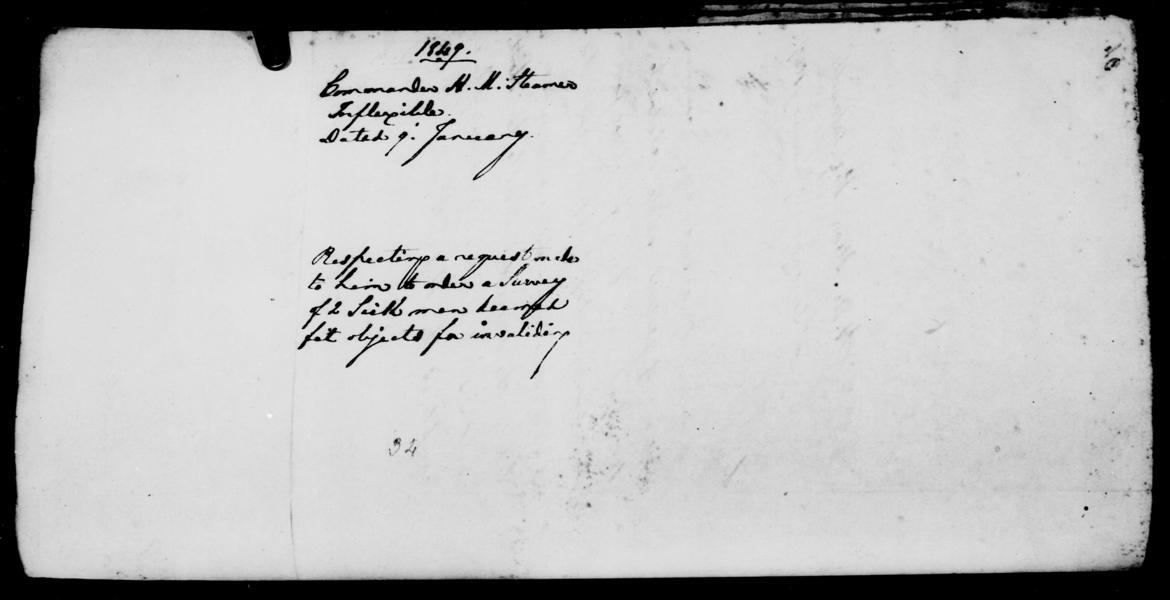 1849.
Commander H. M. Steamer
Inflexible.
Dated 9. January.
Respecting a request made
to him to order a Survey
of 2 Sick men deemed
fit objects for invaliding
34